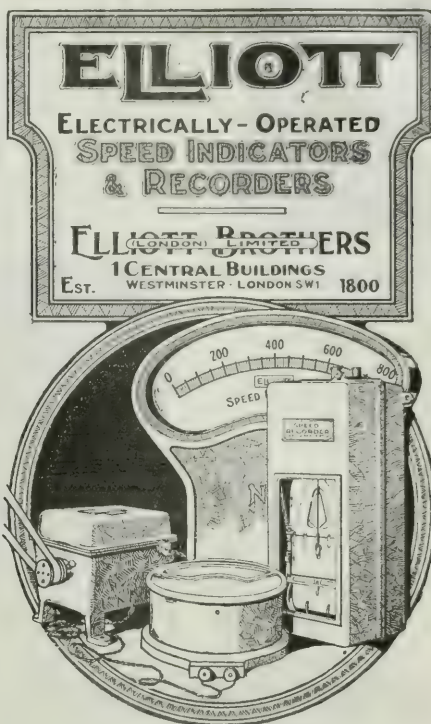 ELLIOTT
ELECTRICALLY-OPERATED
SPEED INDICATORS
& RECORDERS
ELLIOTT BROTHERS
(LONDON) LIMITED
1 CENTRAL BUILDINGS
EST. WESTMINSTER · LONDON SW1 1800
0 200 400 600 800
SPEED
SPEED
RECORDER